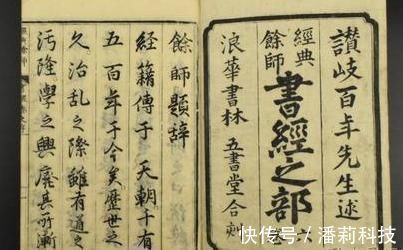 讃岐百年先生述
經典
餘師
書經之部
浪華書林
五書堂合刻
餘師題辞
經籍傳于 天朝十有
五百年于今矣歷世之
久治乱之際雖有道之
汚隆學之興廢其所漸
快传号/潘莉科技